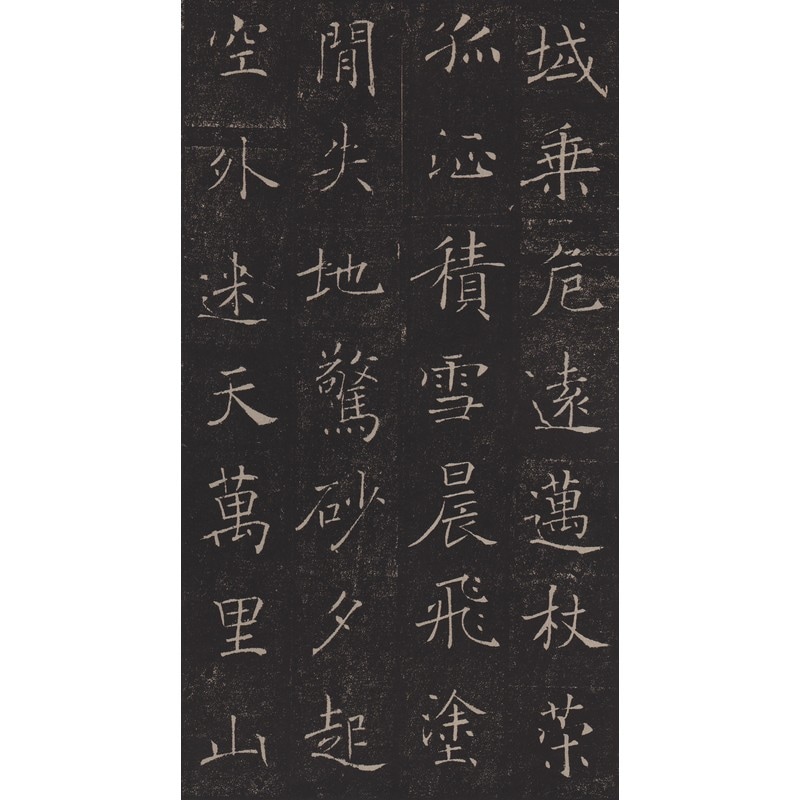 域乗危遠邁杖策
孤征積雪晨飛塗
閒失地驚砂夕起
空外迷天萬里山